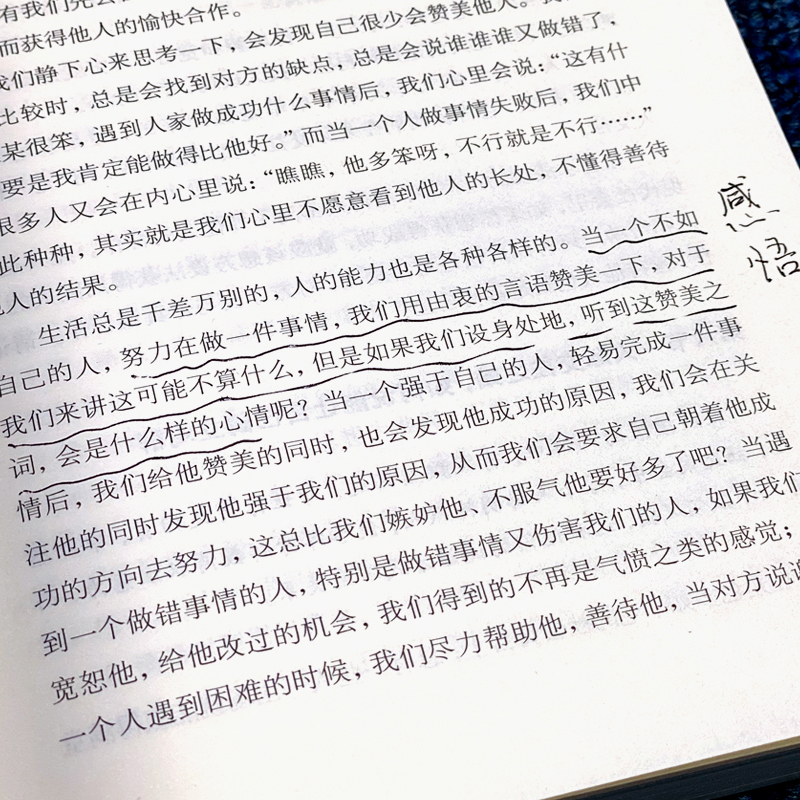 有我们先会
而获得他人的愉快合作。
我们静下心来思考一下，会发现自己很少会赞美他人。
比较时，总是会找到对方的缺点，总是会说谁谁谁又做错了，
某很笨，遇到人家做成功什么事情后，我们心里会说：“这有什
要是我肯定能做得比他好。”而当一个人做事情失败后，我们中
很多人又会在内心里说：“瞧瞧，他多笨呀，不行就是不行……”
此种种，其实就是我们心里不愿意看到他人的长处，不懂得善待
他人的结果。
生活总是千差万别的，人的能力也是各种各样的。当一个不如
自己的人，努力在做一件事情，我们用由衷的言语赞美一下，对于
我们来讲这可能不算什么，但是如果我们设身处地，听到这赞美之
词，会是什么样的心情呢？当一个强于自己的人，轻易完成一件事
情后，我们给他赞美的同时，也会发现他成功的原因，我们会在关
注他的同时发现他强于我们的原因，从而我们会要求自己朝着他成
功的方向去努力，这总比我们嫉妒他、不服气他要好多了吧？当遇
到一个做错事情的人，特别是做错事情又伤害我们的人，如果我们
宽恕他，给他改过的机会，我们得到的不再是气愤之类的感觉；
一个人遇到困难的时候，我们尽力帮助他，善待他，当对方说谢
感
悟